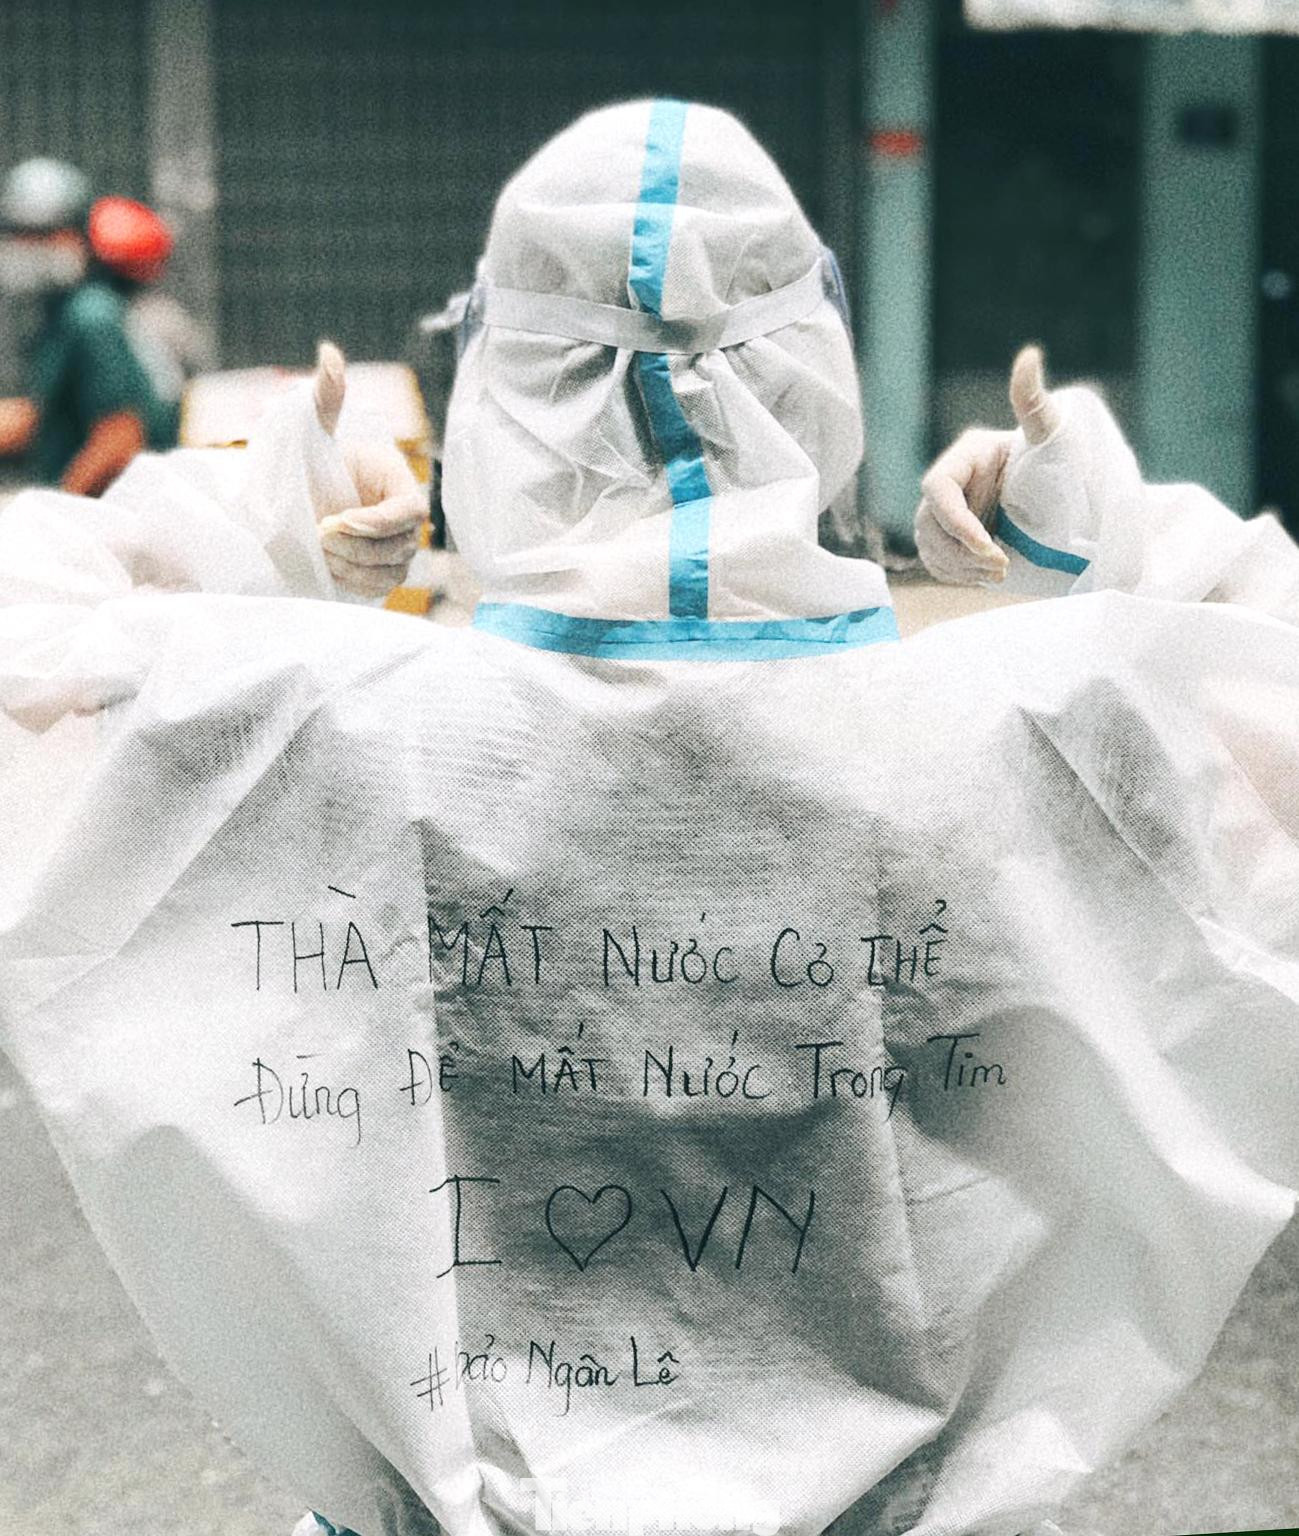 THÀ MẤT NƯỚC CÓ THỂ
Đừng ĐỂ MẤT NƯỚC Trong Tim
I ♡ VN
#bảo Ngân Lê
Tienphong